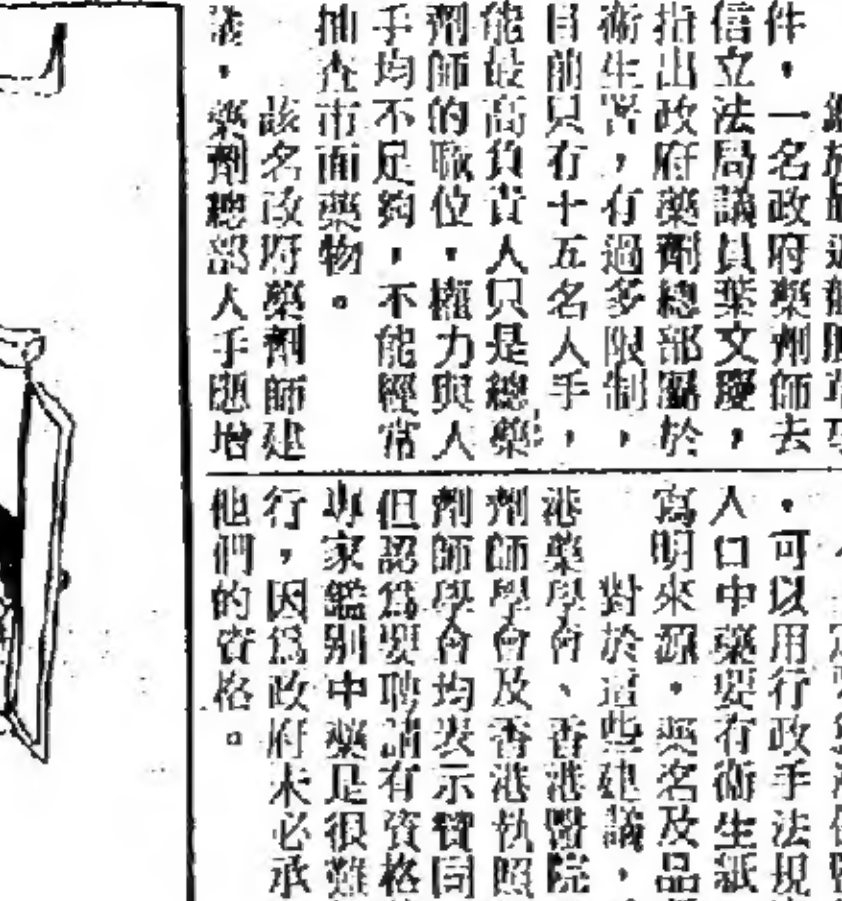 件，一名政府藥劑師去
信立法局議員葉文慶，
指出政府藥劑總部屬於
衞生署，有過多限制，
目前只有十五名人手，
能最高負責人只是總藥
劑師的職位，權力與人
手均不足夠，不能經常
抽查市面藥物。
該名政府藥劑師建
議，藥劑總部人手應增
，可以用行政手法規
人口中藥要有衞生紙
寫明來源，藥名及品
對於這些建議，
港藥學會、香港醫院
劑師學會及香港執照
劑師學會均表示贊同
但認爲要聘請有資格
專家鑑别中藥是很難
行，因爲政府未必承
他們的資格。